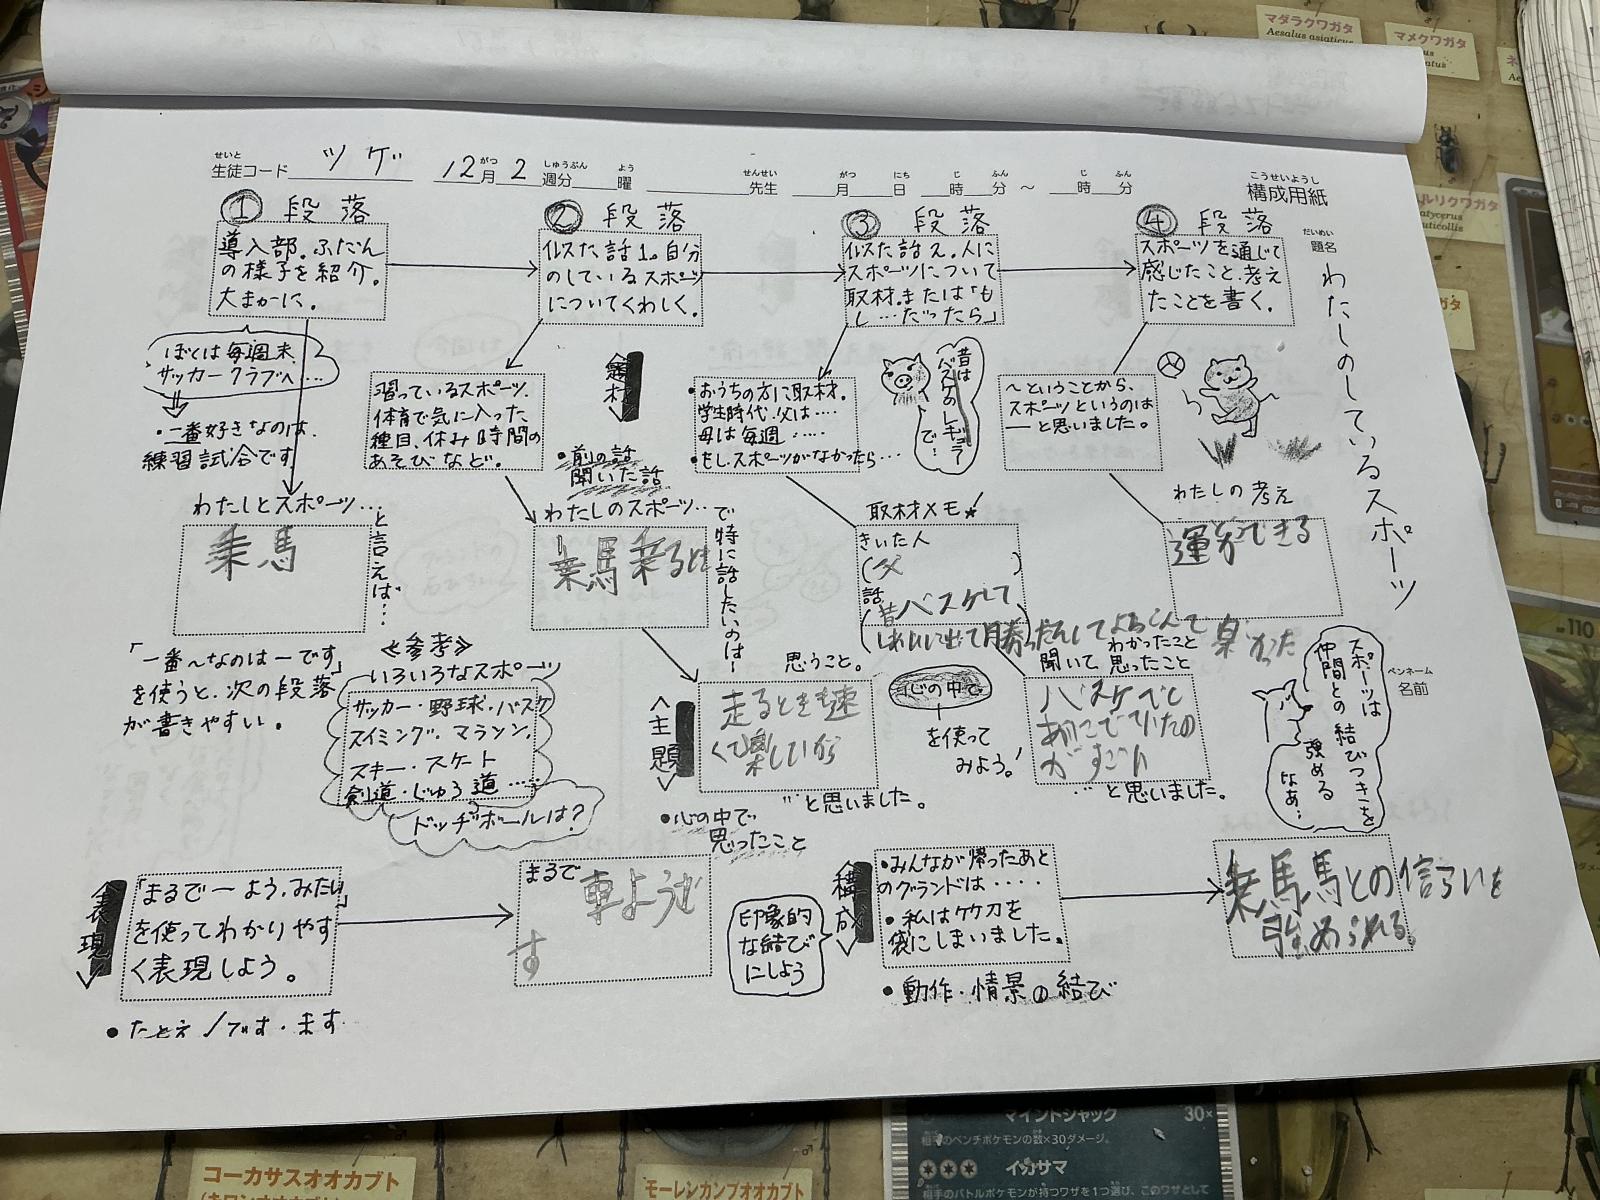 マダラクワガタ
Aesalus asiaticus
マメクワガタ
生徒コード ツゲ 12月2週分 曜 先生 月 日 時 分 〜 時 分
せいと がつ しゅうぶん よう せんせい がつ にち じ ふん じ ふん
こうせいようし
構成用紙
だいめい
題名
わたしのしているスポーツ
ペンネーム
名前
① 段落
導入部。ふだん
の様子を紹介。
大まかに。
ぼくは毎週末、
サッカークラブへ…
・一番好きなのは、
練習試合です
わたしとスポーツ…
乗馬
と言えば…
「一番〜なのは―です」
を使うと、次の段落
が書きやすい。
≪参考≫
いろいろなスポーツ
サッカー・野球・バスケ
スイミング、マラソン、
スキー・スケート
剣道・じゅう道……
ドッヂボールは?
② 段落
似た話1。自分
のしているスポーツ
についてくわしく。
習っているスポーツ、
体育で気に入った
種目、休み時間の
あそびなど。
題材
・前の話
聞いた話
わたしのスポーツ…
乗馬乗るとき
で特に話したいのは…
思うこと。
走るときも速
くて楽しいから
…と思いました。
<主題>
・心の中で
思ったこと
心の中で
を使って
みよう。
③ 段落
似た話2。人に
スポーツについて
取材。または「も
し…だったら」
・おうちの方に取材。
学生時代、父は‥‥
母は毎週‥‥‥
・もし、スポーツがなかったら…
昔は
バスケのレギュラー
で…
取材メモ★
きいた人
(父)
話
昔バスケして
聞いて わかったこと
思ったこと
…と思いました。
④ 段落
スポーツを通じて
感じたこと、考え
たことを書く。
〜ということから、
スポーツというのは
―と思いました。
わたしの考え
運動できる
楽かった
スポーツは
仲間との結びつきを
強める
なあ…
<表現>
「まるで―よう、みたい」
を使ってわかりやす
く表現しよう。
・たとえ/です・ます
まるで 車ようで
す
印象的
な結び
にしよう
<構成>
・みんなが帰ったあと
のグランドは‥‥
・私は竹刀を
袋にしまいました。
・動作・情景の結び
乗馬馬との信らいを
強められる。
110
マインドジャック 30×
相手のベンチポケモンの数×30ダメージ。
イカサマ
コーカサスオオカブト
モーレンカンプオオカブト